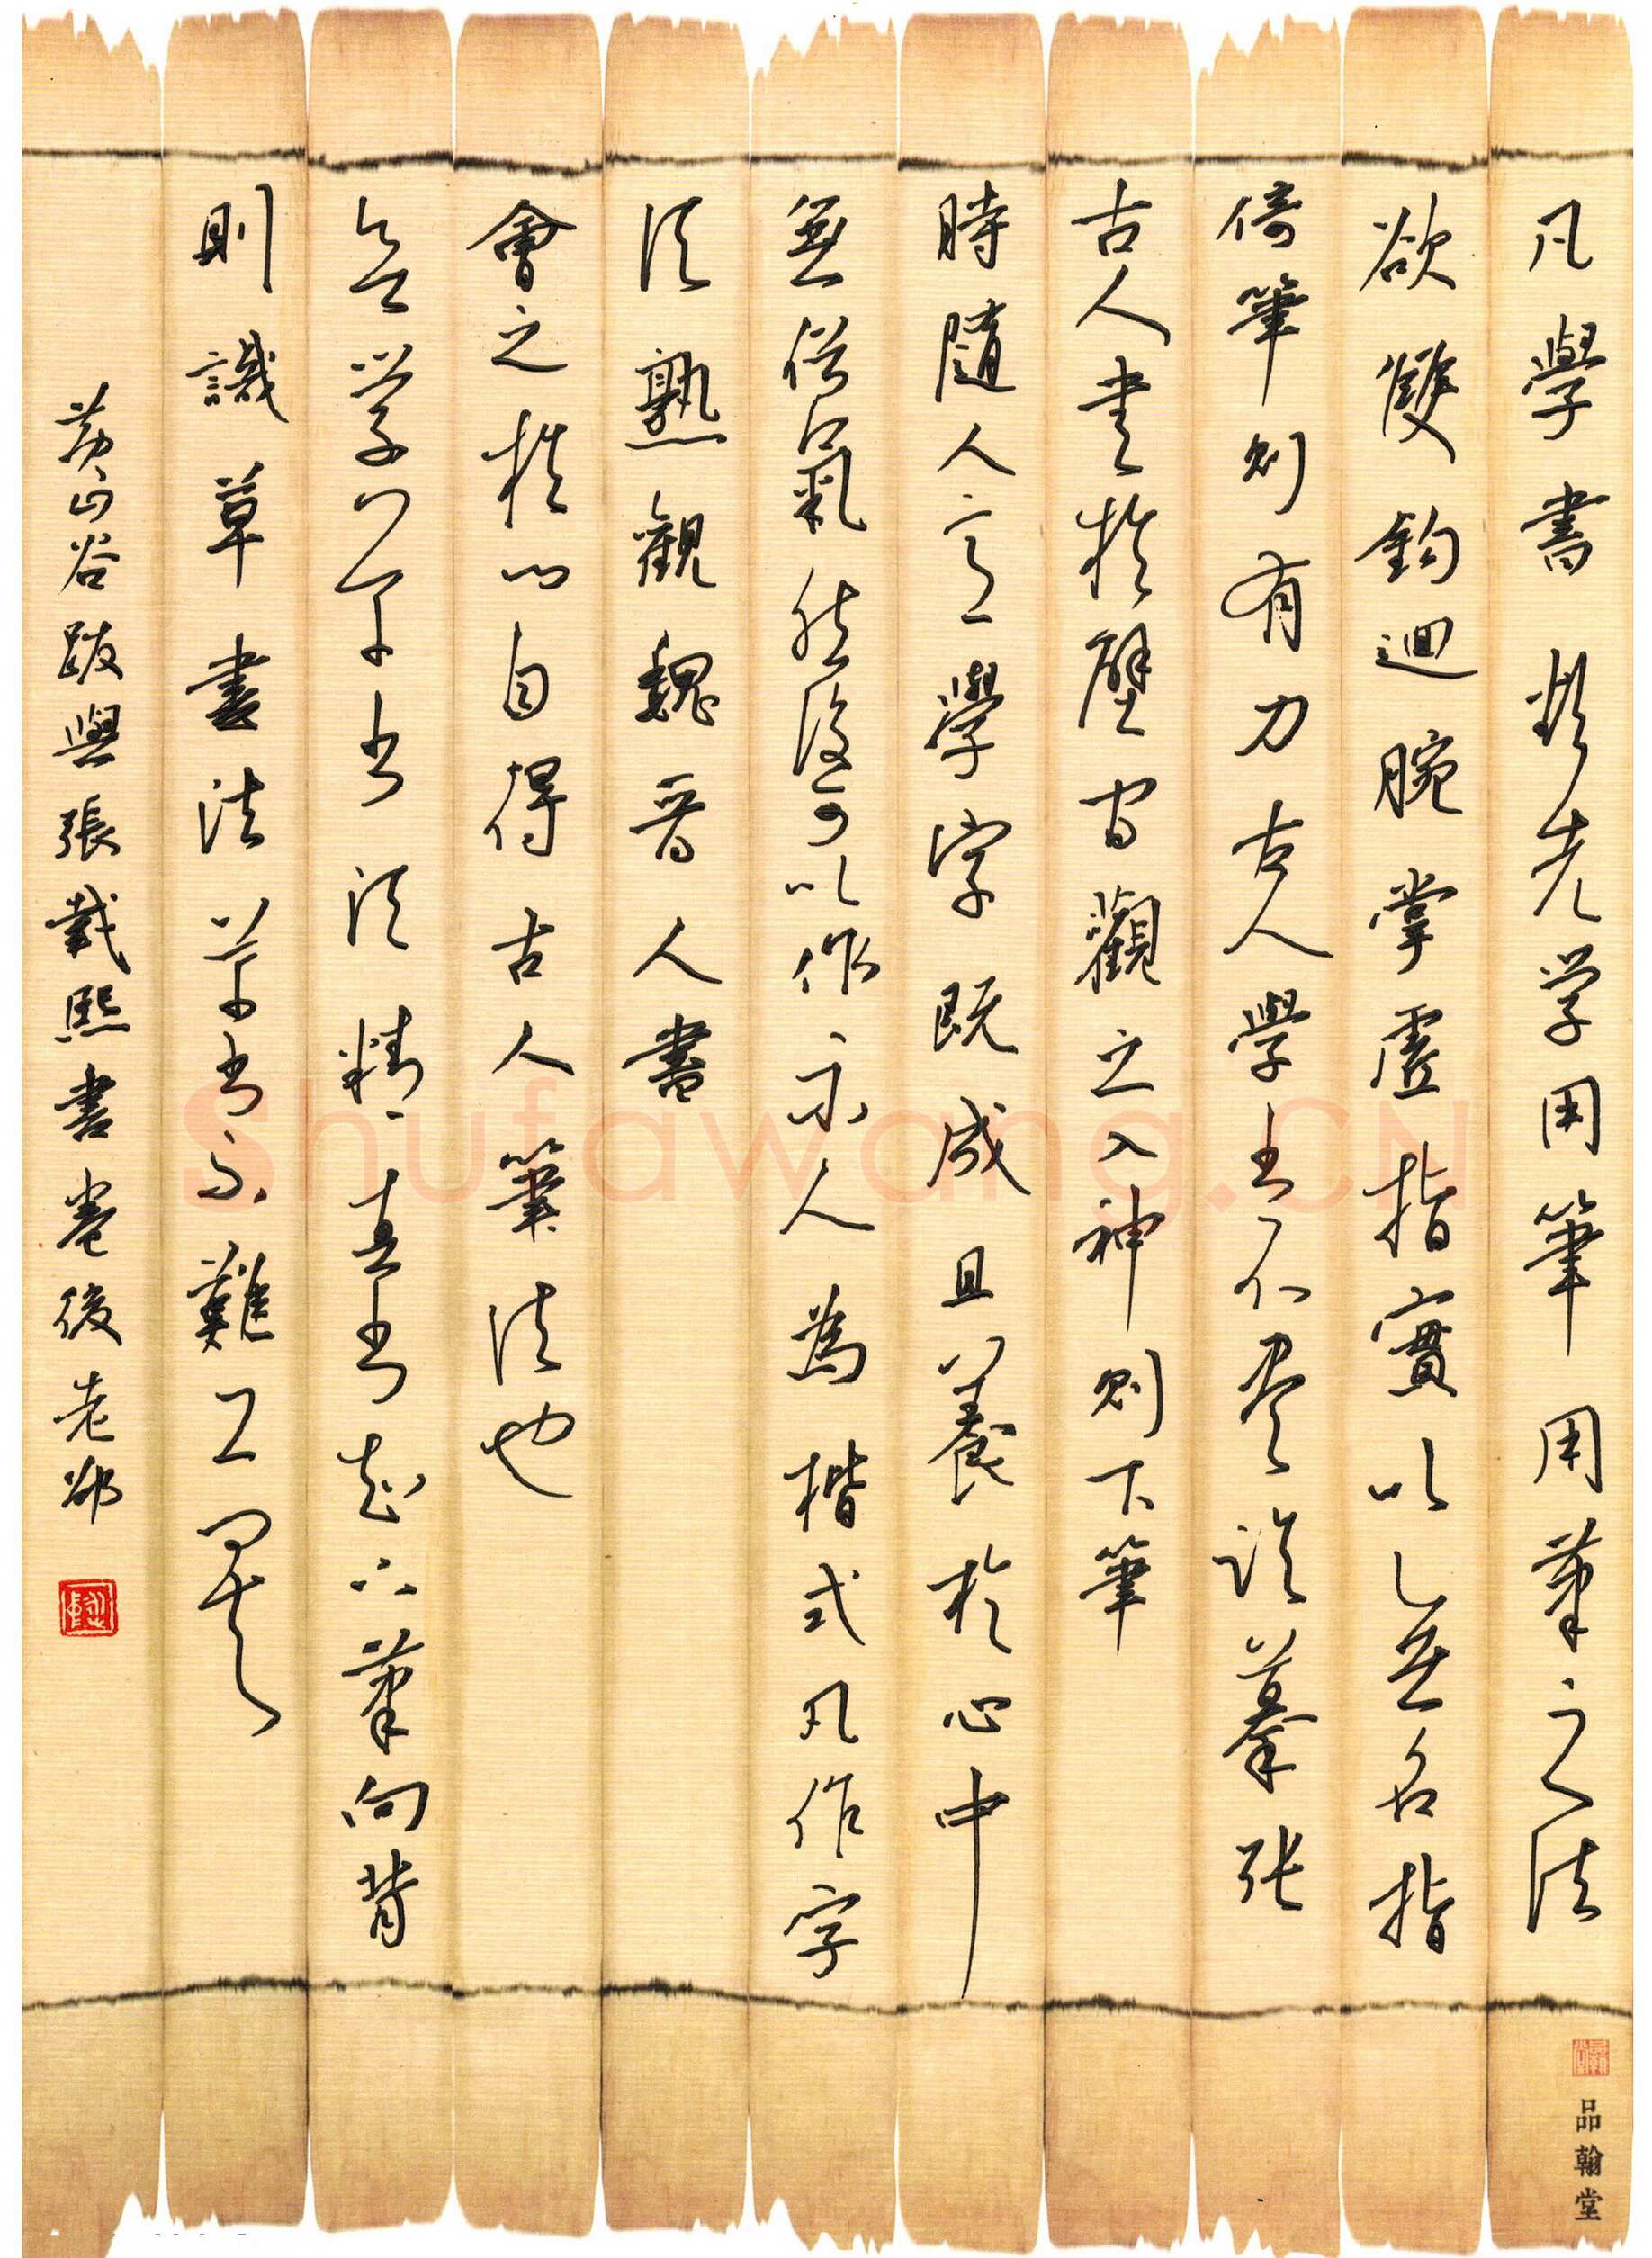 凡學書欲先学用筆用筆之法
欲雙鈎迴腕掌虛指實以無名指
倚筆則有力古人學书不盡臨摹张
古人書於壁间觀之入神則下筆
時随人意學字既成且養於心中
無俗氣然後可以作示人為楷式凡作字
须熟觀魏晋人書
會之於心自得古人筆法也
欲学草书须精真书知下筆向背
則識草書法草书不難工矣
黄山谷跋與張載熙書卷後老邻
品翰堂
Shufawang.CN